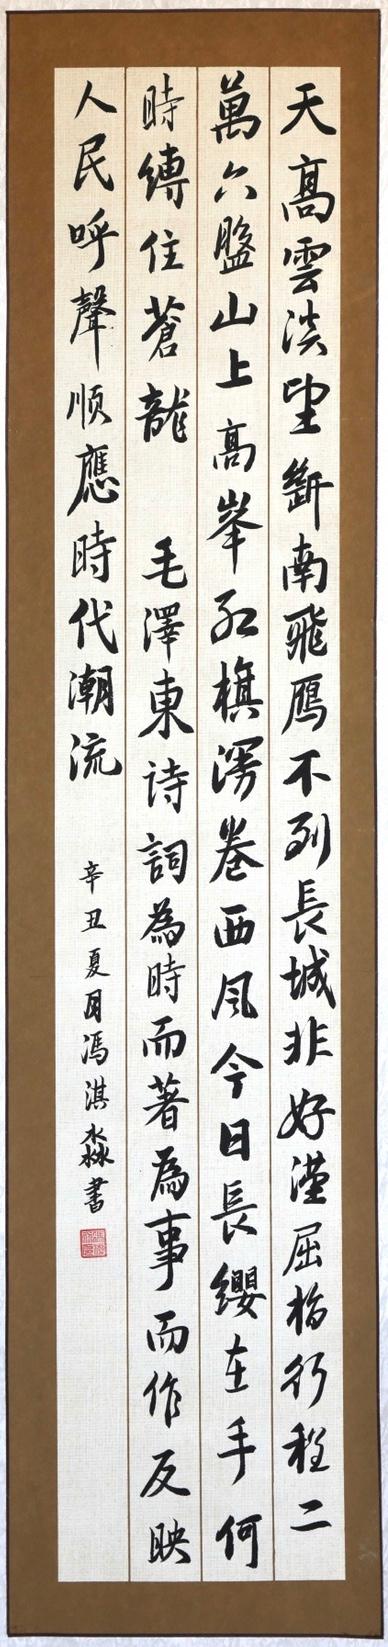 天高雲淡望斷南飛雁不列長城非好漢屈指行程二
萬六盤山上高峯紅旗漫卷西風今日長纓在手何
時縛住蒼龍 毛澤東詩詞為時而著為事而作反映
人民呼聲順應時代潮流 辛丑夏月馮淇淼書